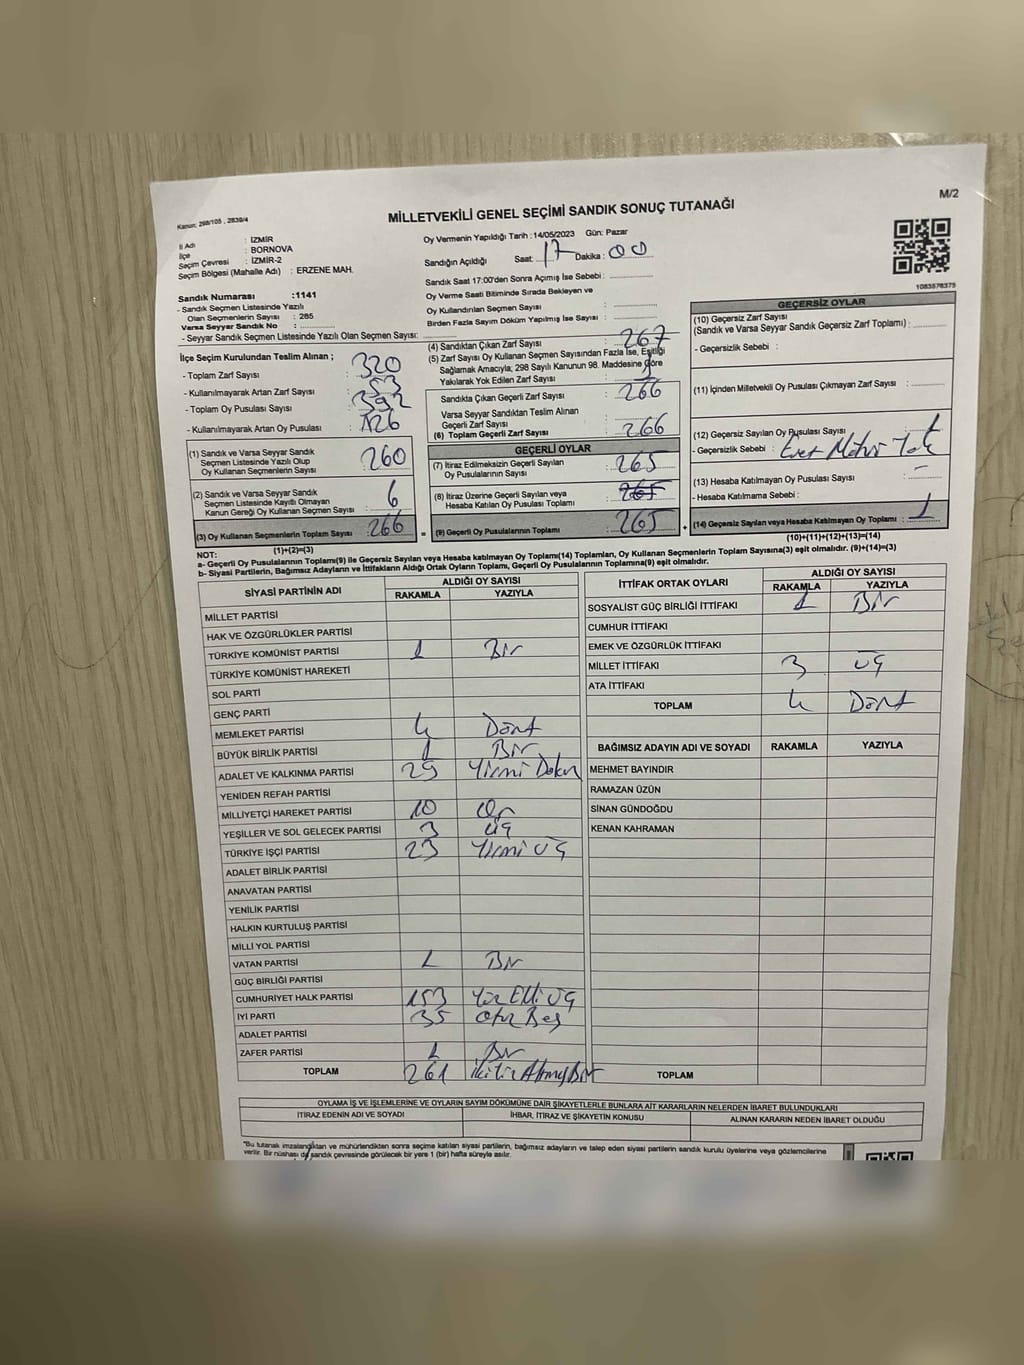 M/2
Kanun: 298/105 , 2839/4
MİLLETVEKİLİ GENEL SEÇİMİ SANDIK SONUÇ TUTANAĞI
İl Adı : İZMİR
İlçe : BORNOVA
Seçim Çevresi : İZMİR-2
Seçim Bölgesi (Mahalle Adı) : ERZENE MAH.
Sandık Numarası :1141
- Sandık Seçmen Listesinde Yazılı
Olan Seçmenlerin Sayısı : 285
Varsa Seyyar Sandık No :
- Seyyar Sandık Seçmen Listesinde Yazılı Olan Seçmen Sayısı:
Oy Vermenin Yapıldığı Tarih :14/05/2023 Gün: Pazar
Sandığın Açıldığı Saat: 17 Dakika : 00
Sandık Saat 17:00'den Sonra Açılmış İse Sebebi :
Oy Verme Saati Bitiminde Sırada Bekleyen ve
Oy Kullandırılan Seçmen Sayısı :
Birden Fazla Sayım Döküm Yapılmış İse Sayısı :
1083578375
İlçe Seçim Kurulundan Teslim Alınan ;
- Toplam Zarf Sayısı : 320
- Kullanılmayarak Artan Zarf Sayısı : 53
- Toplam Oy Pusulası Sayısı : 392
- Kullanılmayarak Artan Oy Pusulası : 126
(1) Sandık ve Varsa Seyyar Sandık
Seçmen Listesinde Yazılı Olup
Oy Kullanan Seçmenlerin Sayısı : 260
(2) Sandık ve Varsa Seyyar Sandık
Seçmen Listesinde Kayıtlı Olmayan
Kanun Gereği Oy Kullanan Seçmen Sayısı : 6
(3) Oy Kullanan Seçmenlerin Toplam Sayısı : 266
(1)+(2)=(3)
(4) Sandıktan Çıkan Zarf Sayısı : 267
(5) Zarf Sayısı Oy Kullanan Seçmen Sayısından Fazla İse, Eşitliği
Sağlamak Amacıyla; 298 Sayılı Kanunun 98. Maddesine Göre
Yakılarak Yok Edilen Zarf Sayısı : 1
Sandıkta Çıkan Geçerli Zarf Sayısı : 266
Varsa Seyyar Sandıktan Teslim Alınan
Geçerli Zarf Sayısı :
(6) Toplam Geçerli Zarf Sayısı : 266
GEÇERLİ OYLAR
(7) İtiraz Edilmeksizin Geçerli Sayılan
Oy Pusulalarının Sayısı : 265
(8) İtiraz Üzerine Geçerli Sayılan veya
Hesaba Katılan Oy Pusulası Toplamı : 265
(9) Geçerli Oy Pusulalarının Toplamı : 265
GEÇERSİZ OYLAR
(10) Geçersiz Zarf Sayısı
(Sandık ve Varsa Seyyar Sandık Geçersiz Zarf Toplamı) :
- Geçersizlik Sebebi :
(11) İçinden Milletvekili Oy Pusulası Çıkmayan Zarf Sayısı :
(12) Geçersiz Sayılan Oy Pusulası Sayısı : 1
- Geçersizlik Sebebi : Evet
(13) Hesaba Katılmayan Oy Pusulası Sayısı : -
- Hesaba Katılmama Sebebi :
(14) Geçersiz Sayılan veya Hesaba Katılmayan Oy Toplamı : 1
(10)+(11)+(12)+(13)=(14)
NOT:
a- Geçerli Oy Pusulalarının Toplamı(9) ile Geçersiz Sayılan veya Hesaba katılmayan Oy Toplamı(14) Toplamları, Oy Kullanan Seçmenlerin Toplam Sayısına(3) eşit olmalıdır. (9)+(14)=(3)
b- Siyasi Partilerin, Bağımsız Adayların ve İttifakların Aldığı Ortak Oyların Toplamı, Geçerli Oy Pusulalarının Toplamına(9) eşit olmalıdır.
SİYASİ PARTİNİN ADI ALDIĞI OY SAYISI
RAKAMLA YAZIYLA
MİLLET PARTİSİ
HAK VE ÖZGÜRLÜKLER PARTİSİ
TÜRKİYE KOMÜNİST PARTİSİ 1 Bir
TÜRKİYE KOMÜNİST HAREKETİ
SOL PARTİ
GENÇ PARTİ
MEMLEKET PARTİSİ 4 Dört
BÜYÜK BİRLİK PARTİSİ 1 Bir
ADALET VE KALKINMA PARTİSİ 29 Yirmi Dokuz
YENİDEN REFAH PARTİSİ
MİLLİYETÇİ HAREKET PARTİSİ 10 On
YEŞİLLER VE SOL GELECEK PARTİSİ 3 Üç
TÜRKİYE İŞÇİ PARTİSİ 23 Yirmi Üç
ADALET BİRLİK PARTİSİ
ANAVATAN PARTİSİ
YENİLİK PARTİSİ
HALKIN KURTULUŞ PARTİSİ
MİLLİ YOL PARTİSİ
VATAN PARTİSİ 1 Bir
GÜÇ BİRLİĞİ PARTİSİ
CUMHURİYET HALK PARTİSİ 153 Yüz Elli Üç
İYİ PARTİ 35 Otuz Beş
ADALET PARTİSİ
ZAFER PARTİSİ 1 Bir
TOPLAM 261 İkiYüz Altmış Bir
İTTİFAK ORTAK OYLARI ALDIĞI OY SAYISI
RAKAMLA YAZIYLA
SOSYALİST GÜÇ BİRLİĞİ İTTİFAKI 1 Bir
CUMHUR İTTİFAKI
EMEK VE ÖZGÜRLÜK İTTİFAKI
MİLLET İTTİFAKI 3 Üç
ATA İTTİFAKI
TOPLAM 4 Dört
BAĞIMSIZ ADAYIN ADI VE SOYADI RAKAMLA YAZIYLA
MEHMET BAYINDIR
RAMAZAN ÜZÜN
SİNAN GÜNDOĞDU
KENAN KAHRAMAN
TOPLAM
OYLAMA İŞ VE İŞLEMLERİNE VE OYLARIN SAYIM DÖKÜMÜNE DAİR ŞİKAYETLERLE BUNLARA AİT KARARLARIN NELERDEN İBARET BULUNDUKLARI
İTİRAZ EDENİN ADI VE SOYADI İHBAR, İTİRAZ VE ŞİKAYETİN KONUSU ALINAN KARARIN NEDEN İBARET OLDUĞU
"Bu tutanak imzalandıktan ve mühürlendikten sonra seçime katılan siyasi partilerin, bağımsız adayların ve talep eden siyasi partilerin sandık kurulu üyelerine veya gözlemcilerine
verilir. Bir nüshası da sandık çevresinde görülecek bir yere 1 (bir) hafta süreyle asılır.